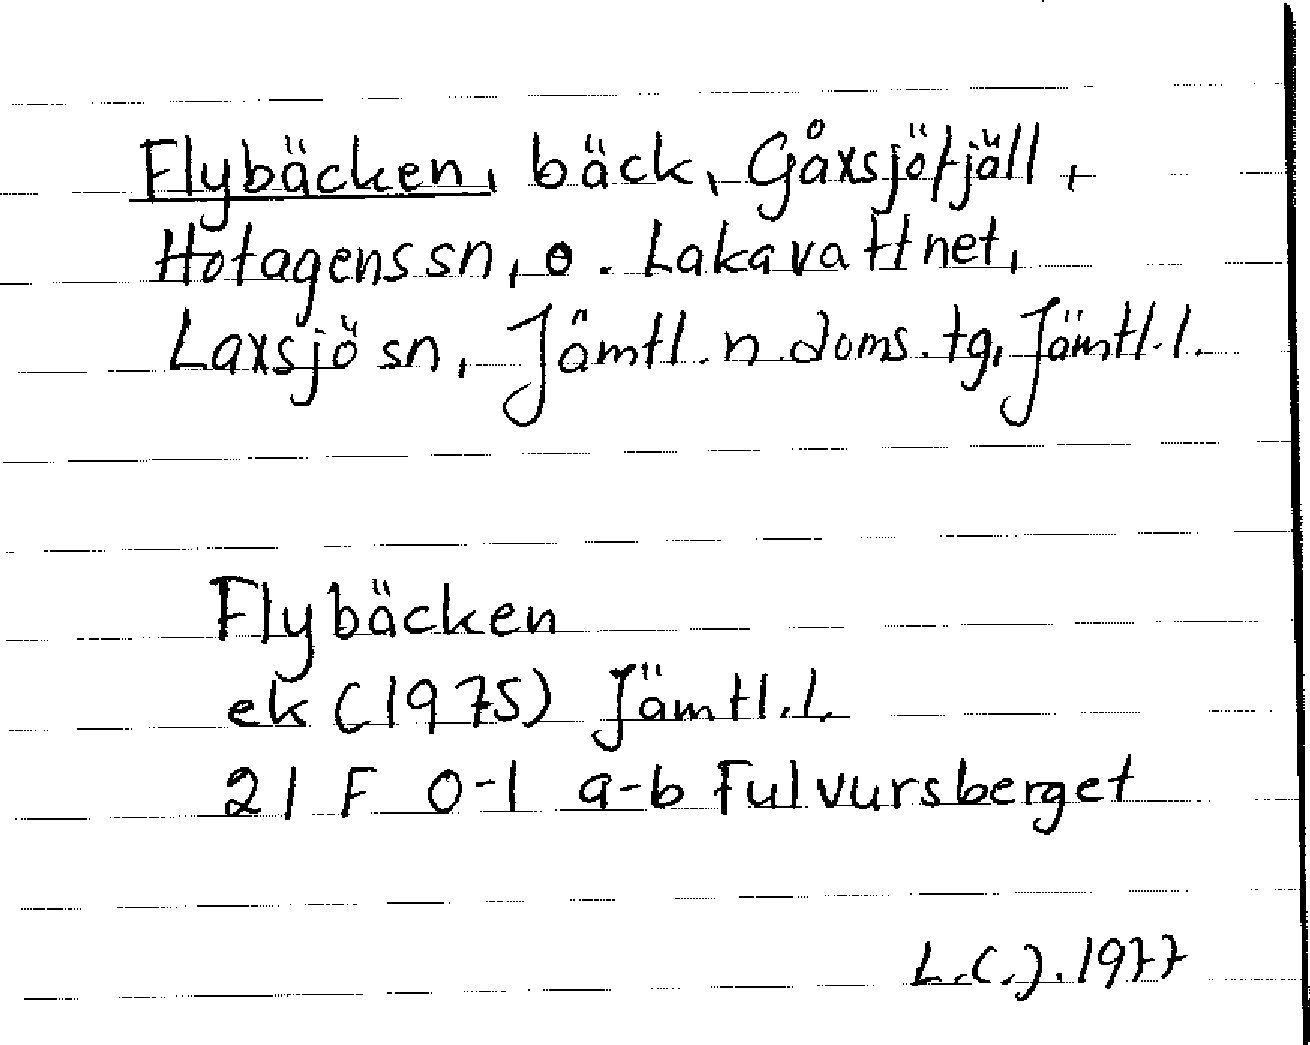 Flybäcken, bäck, Gåxsjöfjäll,
Hotagens sn, o. Lakavattnet,
Laxsjö sn, Jämtl. n. doms. tg, Jämtl. l.
Flybäcken
ek (1975) Jämtl. l.
21 F 0-1 a-b Fulvursberget
L.C.J. 1977